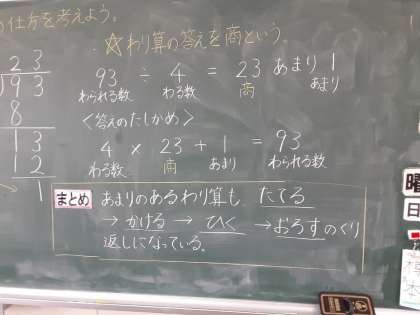 の仕方を考えよう。
☆わり算の答えを商という。
23
93
8
13
12
1
93 ÷ 4 = 23 あまり 1
わられる数 わる数 商 あまり
<答えのたしかめ>
4 × 23 + 1 = 93
わる数 商 あまり わられる数
まとめ
あまりのあるわり算も たてる
→ かける → ひく → おろすのくり
返しになっている。
曜
日